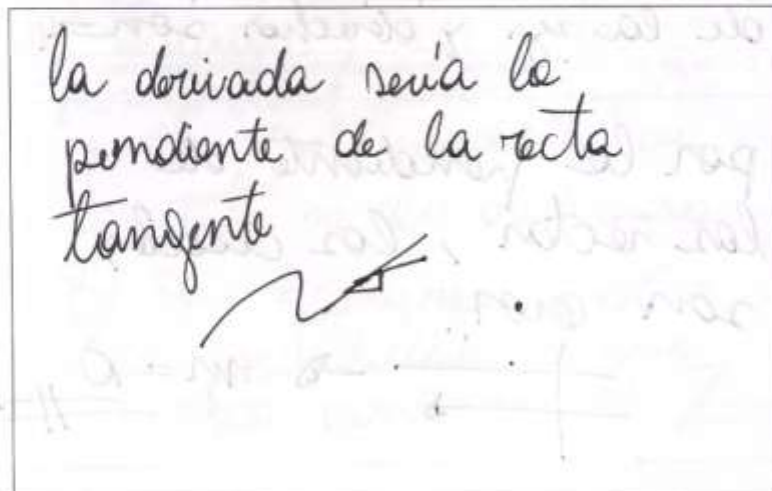 la derivada sería la
pendiente de la recta
tangente